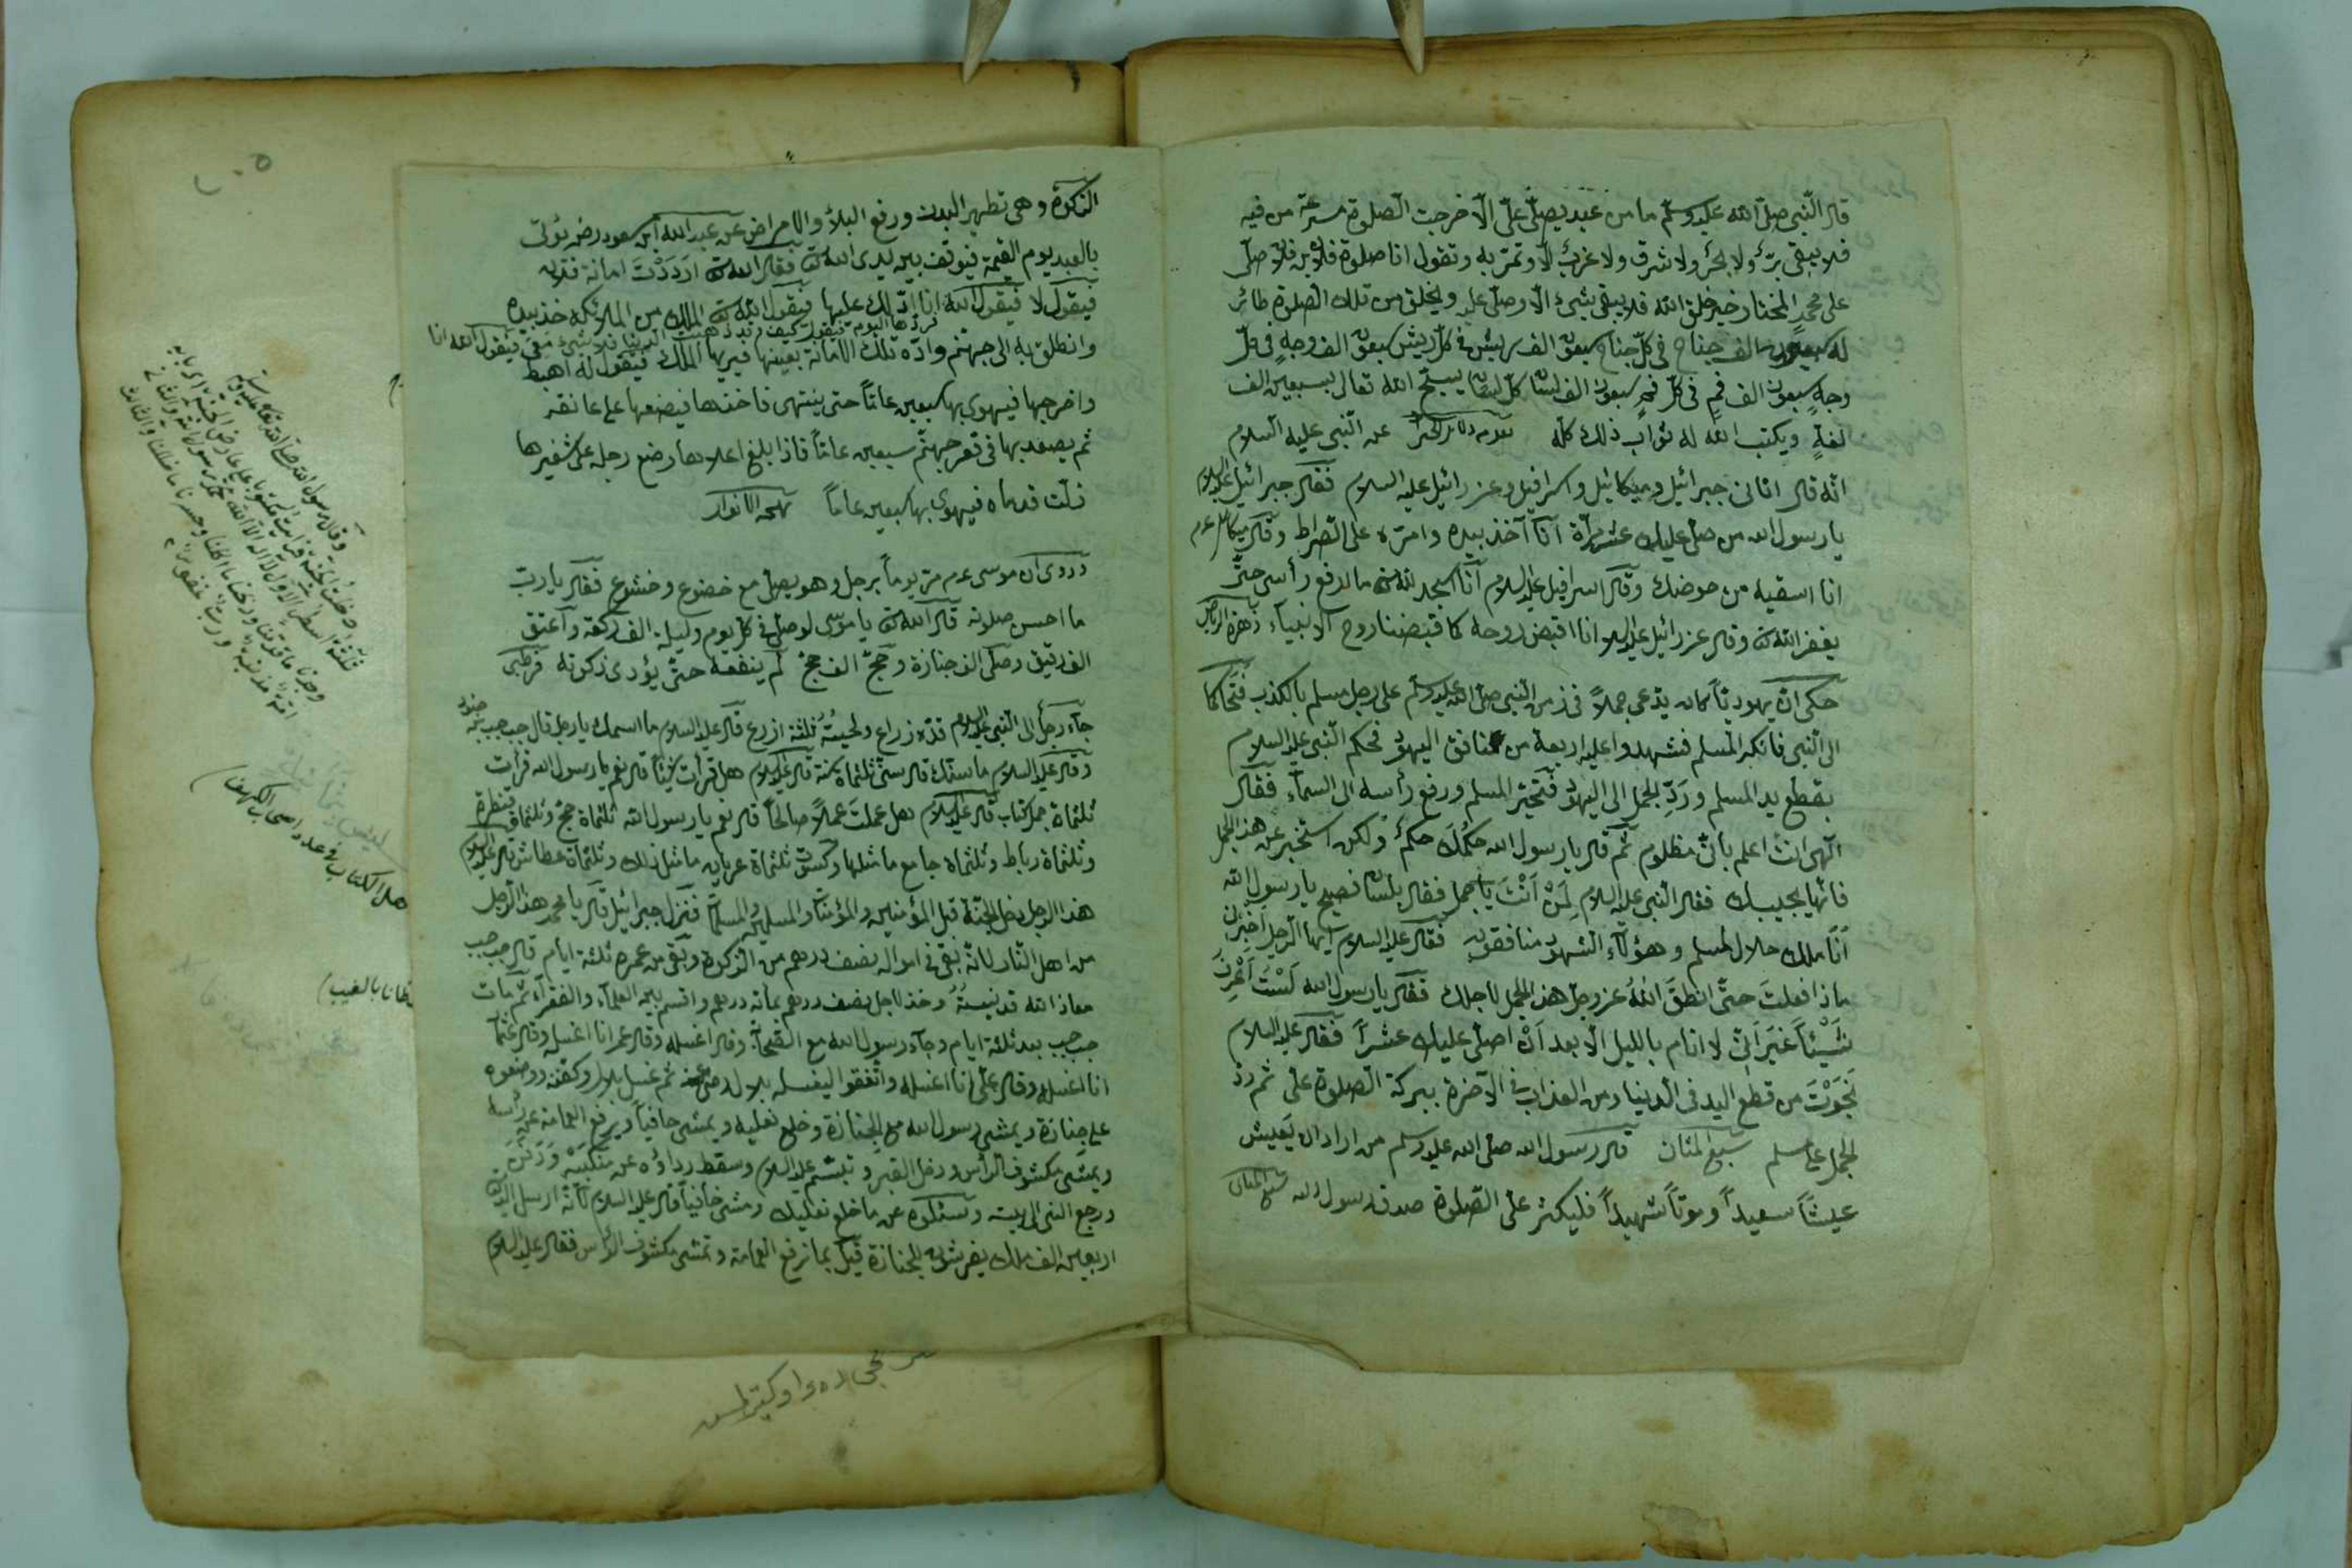 قال النّبى صلّى الله عليه وسلّم ما من عبد يصلّى علىّ الّا خرجت الصّلوة مسرعة من فيه
فلا يبقى برّ ولا بحر ولا شرق ولا غرب الّا وتمرّ به وتقول انا صلوة فلان بن فلان صلّى
على محمّد المختار خير خلق الله فلا يبقى شئ الّا وصلّى عليه ويخلق من تلك الصّلوة طائر
له سبعون الف جناح فى كلّ جناح سبعون الف ريش فى كلّ ريش سبعون الف وجه فى كلّ
وجه سبعون الف فم فى كلّ فم سبعون الف لسان كلّ لسان يسبّح الله تعالى بسبعين الف
لغة ويكتب الله له ثواب ذلك كلّه عن النّبى عليه السلام
انّه قال اتانى جبرائيل وميكائيل واسرافيل وعزرائيل عليه السلام فقال جبرائيل عليه السلام
يا رسول الله من صلّى عليك عشر مرّة انا آخذ بيده وامرّه على الصّراط وقال ميكائيل عم
انا اسقيه من حوضك وقال اسرافيل عليه السلام انا اسجد لله تع ما ارفع رأسى حتّى
يغفر الله تع وقال عزرائيل عليه السلام انا اقبض روحه كما قبضنا روح الانبياء زهرة الرياض
حكى انّ يهوديّا كان يدّعى جملاً فى زمن النّبى صلّى الله عليه وسلّم على رجل مسلم بالكذب فتحاكما
الى النّبى فانكر المسلم فشهدوا عليه اربعة من منافق اليهود فحكم النّبى عليه السلام
بقطع يد المسلم وردّ الجمل الى اليهود فتحيّر المسلم ورفع رأسه الى السماء فقال
الهى انت اعلم بانّى مظلوم ثمّ قال يا رسول الله حكمك حكم ولكن استخبر عن هذا الجمل
فانّها يجيبك فقال النّبى عليه السلام لمن انت يا جمل فقال بلسان فصيح يا رسول الله
انا ملك حلال لمسلم وهؤلاء الشهود منافقون فقال عليه السلام ايها الرجل اخبرنى
ماذا فعلت حتّى انطق الله عزوجل هذا الجمل لاجلك فقال يا رسول الله لست اعرف
شيئاً غير انّى لا انام بالليل الّا بعد ان اصلّى عليك عشراً فقال عليه السلام
نجوت من قطع اليد فى الدنيا ومن العذاب فى الآخرة ببركة الصلوة علىّ ثم ردّ
الجمل على مسلم سبع المثان قال رسول الله صلى الله عليه وسلم من اراد ان يعيش
عيشاً سعيداً وموتاً شهيداً فليكثر علىّ الصّلوة صدق رسول الله سبع المثان
الزكوة وهى تطهير البدن ورفع البلاء والامراض عن عبد الله ابن مسعود رضه يؤتى
بالعبد يوم القيمة فيوقف بين يدى الله تع فقال الله تع ارددت امانة فلان
فيقول لا فيقول الله انا ادلّك عليها فيقول الله تع لملك من الملائكة خذ بيده
نردّها اليوم فيقول كيف وقد ذهبت الدنيا فلا شئ معى فيقول الله انا
وانطلق به الى جهنّم واره تلك الامانة بعينها فيريها الملك فيقول له اهبط
واخرجها فيهوى بها سبعين عاماً حتى ينتهى فاخذها فيضعها على عانقه
ثم يصعد بها فى قعر جهنّم سبعين عاماً فاذا بلغ اعلاها وضع رجله على شفيرها
زلّت قدماه فيهوى بها سبعين عاماً بهجة الانوار
وروى ان موسى عم مرّ يوماً برجل وهو يصلّى مع خضوع وخشوع فقال يا ربّ
ما احسن صلوته قال الله تع يا موسى لو صلّى فى كلّ يوم وليلة الف ركعة واعتق
الف رقيق وصلّى الف جنازة وحجّ الف حجّ لم ينفعه حتّى يؤدى زكوته قرطبى
جاء رجل الى النّبى عليه السلام قدّه زراع ولحيته ثلثة ازرع قال عليه السلام ما اسمك يا رجل قال حبحب بن
وقال عليه السلام ما سنّك قال سنّى ثلثماة سنة قال عليه السلام هل قرأت شيئاً قال نعم يا رسول الله قرأت
ثلثماة جمل كتاب قال عليه السلام هل عملت عملاً صالحاً قال نعم يا رسول الله ثلثماة حجّ وثلثماة قنطرة
وثلثماة رباط وثلثماة جامع ما مثلها وكسوت ثلثماة عريان ما مثل ذلك وثلثماة عطاش قال عليه السلام
هذا الرجل يدخل الجنّة قبل المؤمنين والمؤمنات والمسلمين والمسلمات فنزل جبرائيل قال يا محمد هذا الرجل
من اهل النّار لانّه بقى فى امواله نصف درهم من الزكوة وبقى من عمره ثلثة ايام قال حبحب
معاذ الله قد نسيته وخذ لاجل نصف درهم بمائة درهم واقسم بين العلماء والفقراء ثم مات
حبحب بعد ثلثة ايام وجاء رسول الله مع الصّحابة وقال اغسله وقال عمر انا اغسله وقال عثمان
انا اغسله وقال على انا اغسله واتّفقوا ليغسله بلال رضى عنه ثم غسل بلال وكفنه ووضعوه
على جنازة ويمشى رسول الله مع الجنازة وخلع نعليه ويمشى حافياً ويرفع العمامة عن رأسه
ويمشى مكشوف الرأس ودخل القبر وتبسّم عليه السلام وسقط رداؤه عن منكبيه ودفن
ورجع النبى الى بيته وسئلوه عن ما خلع نعليك ومشى حافياً قال عليه السلام لانّه ارسل الله تع
اربعين الف ملك يفرشون للجنازة قيل بما ترفع العمامة وتمشى مكشوف الرأس فقال عليه السلام